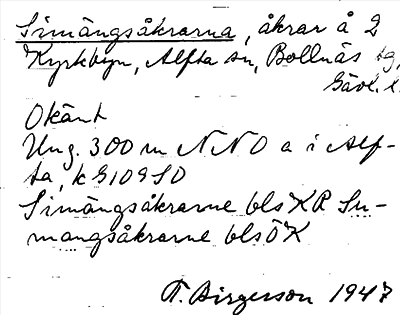 Simängsåkrarna, åkrar å 2
Kyrkbyn, Alfta sn, Bollnäs tg,
Gävl. l.
Okänt
Ung. 300 m NNO a i Alf-
ta, k G109 SO
Simängsåkrarne bls KR Su-
mangsåkrarne bls ÖK
T. Birgersson 1947